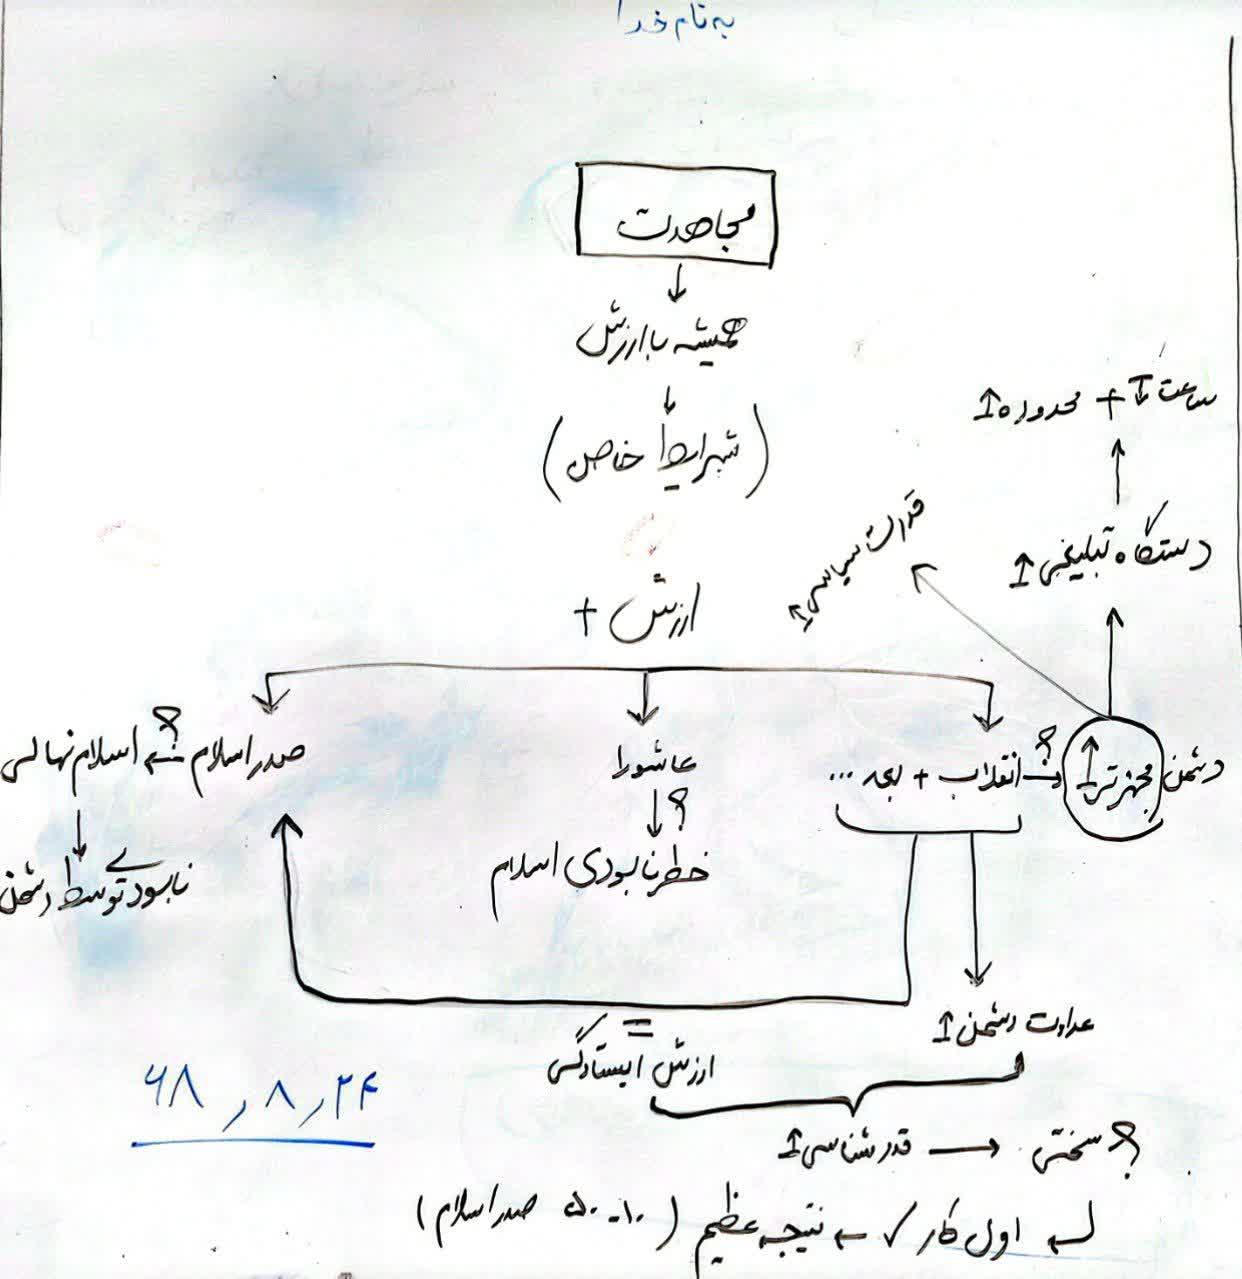 به نام خدا
مجاهدت
↓
همیشه با ارزش
↓
(شرایط خاص)
ساعت ↑ + محدوده ↑
↑
دستگاه تبلیغی ↑
قدرت سیاسی ↑
ارزش +
دشمن مجهزتر ↑ ← ؟ انقلاب + بعد ...
عاشورا
صدر اسلام ← ؟ اسلام نهالی
↓ ؟
خطر نابودی اسلام
↓
نابودی توسط دشمن
عداوت دشمن ↑
=
ارزش ایستادگی
۶۸٫۸٫۲۴
؟ سختی → قدرشناسی ↑
اول کار ✓ ← نتیجه عظیم (۱۰-۵۰ صدر اسلام)